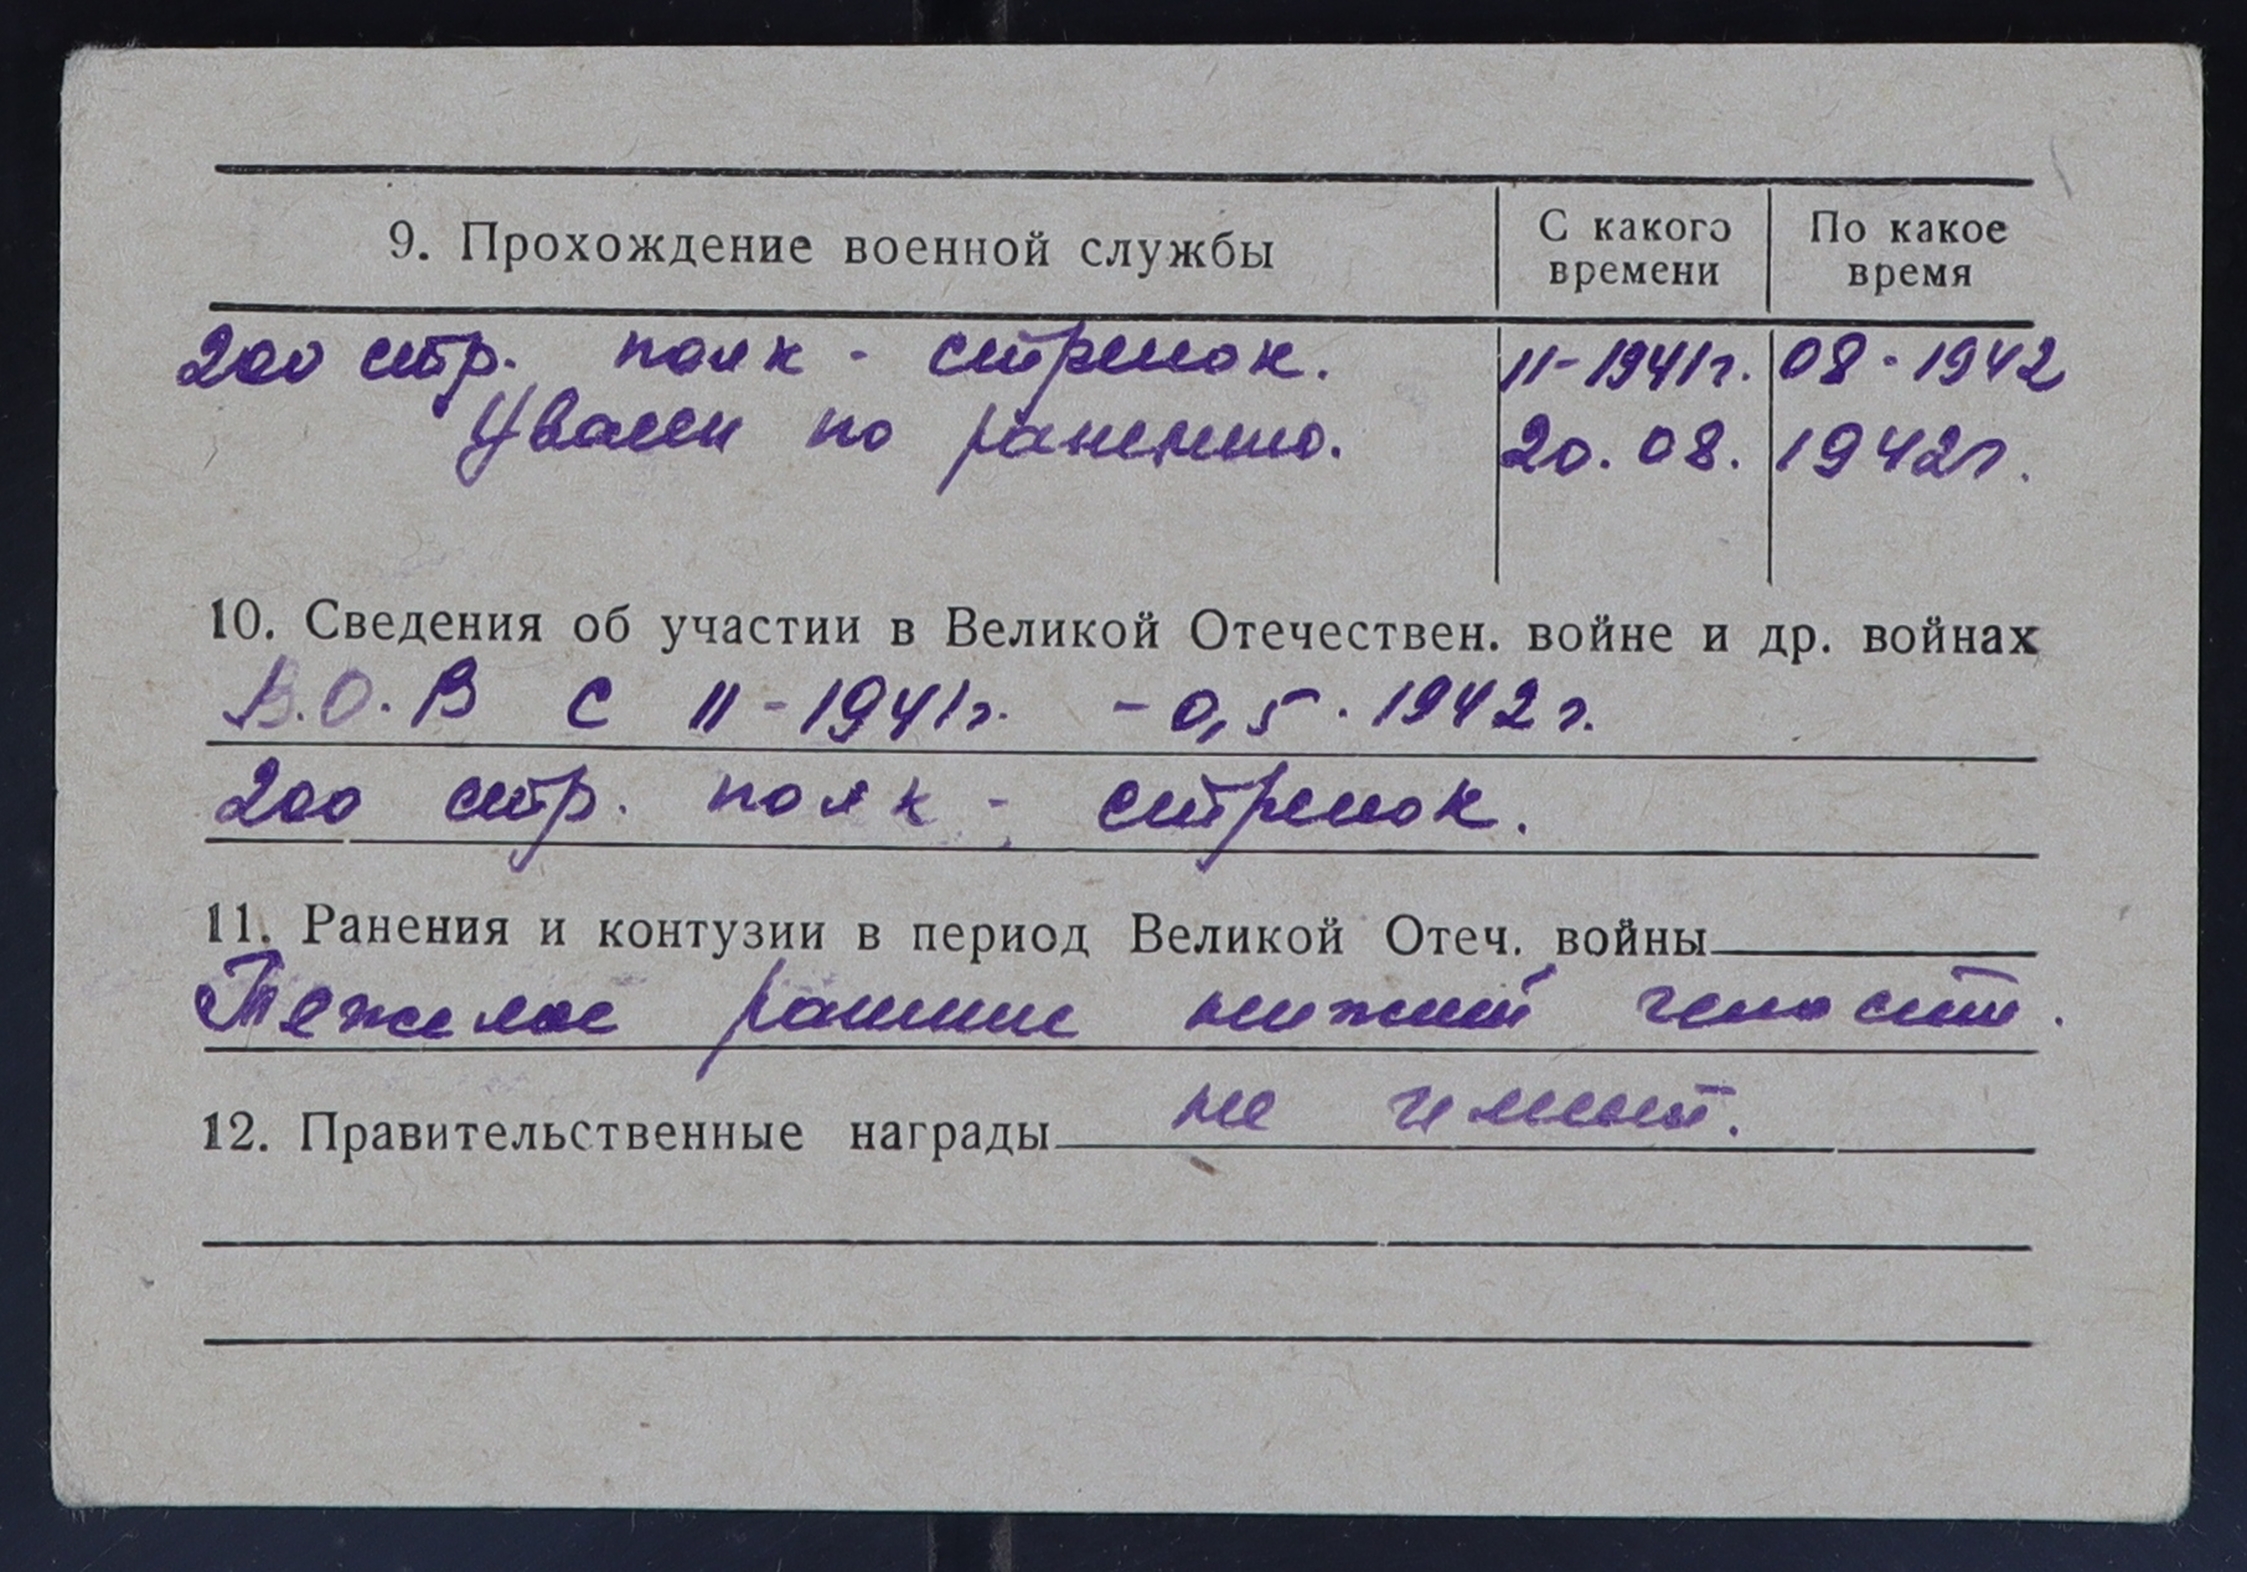 9. Прохождение военной службы
С какого времени
По какое время
200 стр. полк - стрелок. 11-1941г. 08-1942
Уволен по ранению. 20. 08. 1942г.
10. Сведения об участии в Великой Отечествен. войне и др. войнах
В.О.В с 11-1941г. - 0,5. 1942г.
200 стр. полк - стрелок.
11. Ранения и контузии в период Великой Отеч. войны
Тяжелое ранение нижней челюсти.
12. Правительственные награды не имеет.